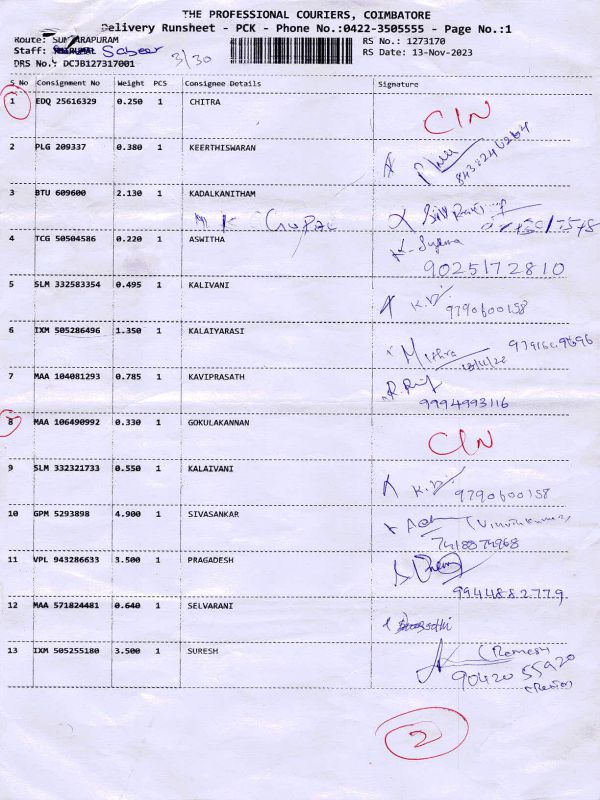 THE PROFESSIONAL COURIERS, COIMBATORE
Delivery Runsheet - PCK - Phone No.:0422-3505555 - Page No.:1
Route: SUNDARAPURAM
Staff: Sabeer
3/30
RS No.: 1273170
RS Date: 13-Nov-2023
DRS No.: DCJB127317001
S No Consignment No Weight PCS Consignee Details Signature
1 EDQ 25616329 0.250 1 CHITRA CIN
2 PLG 209337 0.380 1 KEERTHISWARAN
3 BTU 609600 2.130 1 KADALKANITHAM
4 TCG 50504586 0.220 1 ASWITHA
9025172810
5 SLM 332583354 0.495 1 KALIVANI K.V. 9790600158
6 IXM 505286496 1.350 1 KALAIYARASI Mithra
7 MAA 104081293 0.785 1 KAVIPRASATH
9994993116
8 MAA 106490992 0.330 1 GOKULAKANNAN CIN
9 SLM 332321733 0.550 1 KALAIVANI K.V. 9790600158
10 GPM 5293898 4.900 1 SIVASANKAR
7418874968
11 VPL 943286633 3.500 1 PRAGADESH
9944882779
12 MAA 571824481 0.640 1 SELVARANI
13 IXM 505255180 3.500 1 SURESH (Ramesh)
90420 55920
2